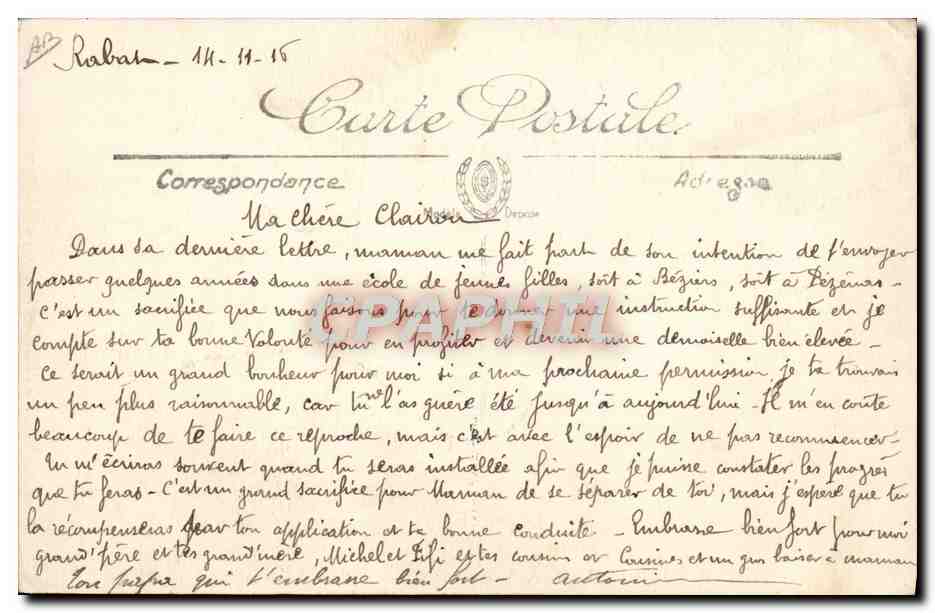 AB
Rabat - 14-11-16
Carte Postale
Correspondance
Adresse
Modèle Déposé
Ma chère Clairon
Dans sa dernière lettre, maman me fait part de son intention de t'envoyer
passer quelques années dans une école de jeunes filles, soit à Béziers, soit à Pézénas -
c'est un sacrifiée que nous faisons pour te donner une instruction suffisante et je
compte sur ta bonne Volonté pour en profiter et devenir une demoiselle bien élevée -
Ce serait un grand bonheur pour moi si à ma prochaine permission je te trouvais
un peu plus raisonnable, car tu ne l'as guère été jusqu'à aujourd'hui - Il m'en coûte
beaucoup de te faire ce reproche, mais c'est avec l'espoir de ne pas recommencer -
Tu m'écriras souvent quand tu seras installée afin que je puisse constater les progrès
que tu feras - C'est un grand sacrifiée pour Maman de se séparer de toi, mais j'espère que tu
la récompenseras par ton application et ta bonne conduite - Embrasse bien fort pour moi
grand'père et tes grand'mère, Michel et Fifi et tes cousins et Cousines et un gros baiser à maman
Ton papa qui t'embrasse bien fort - Antonin
CPAPHIL